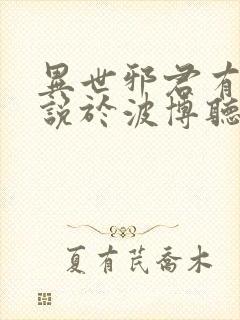 異世邪君有
說於波博聽
夏有芪喬木